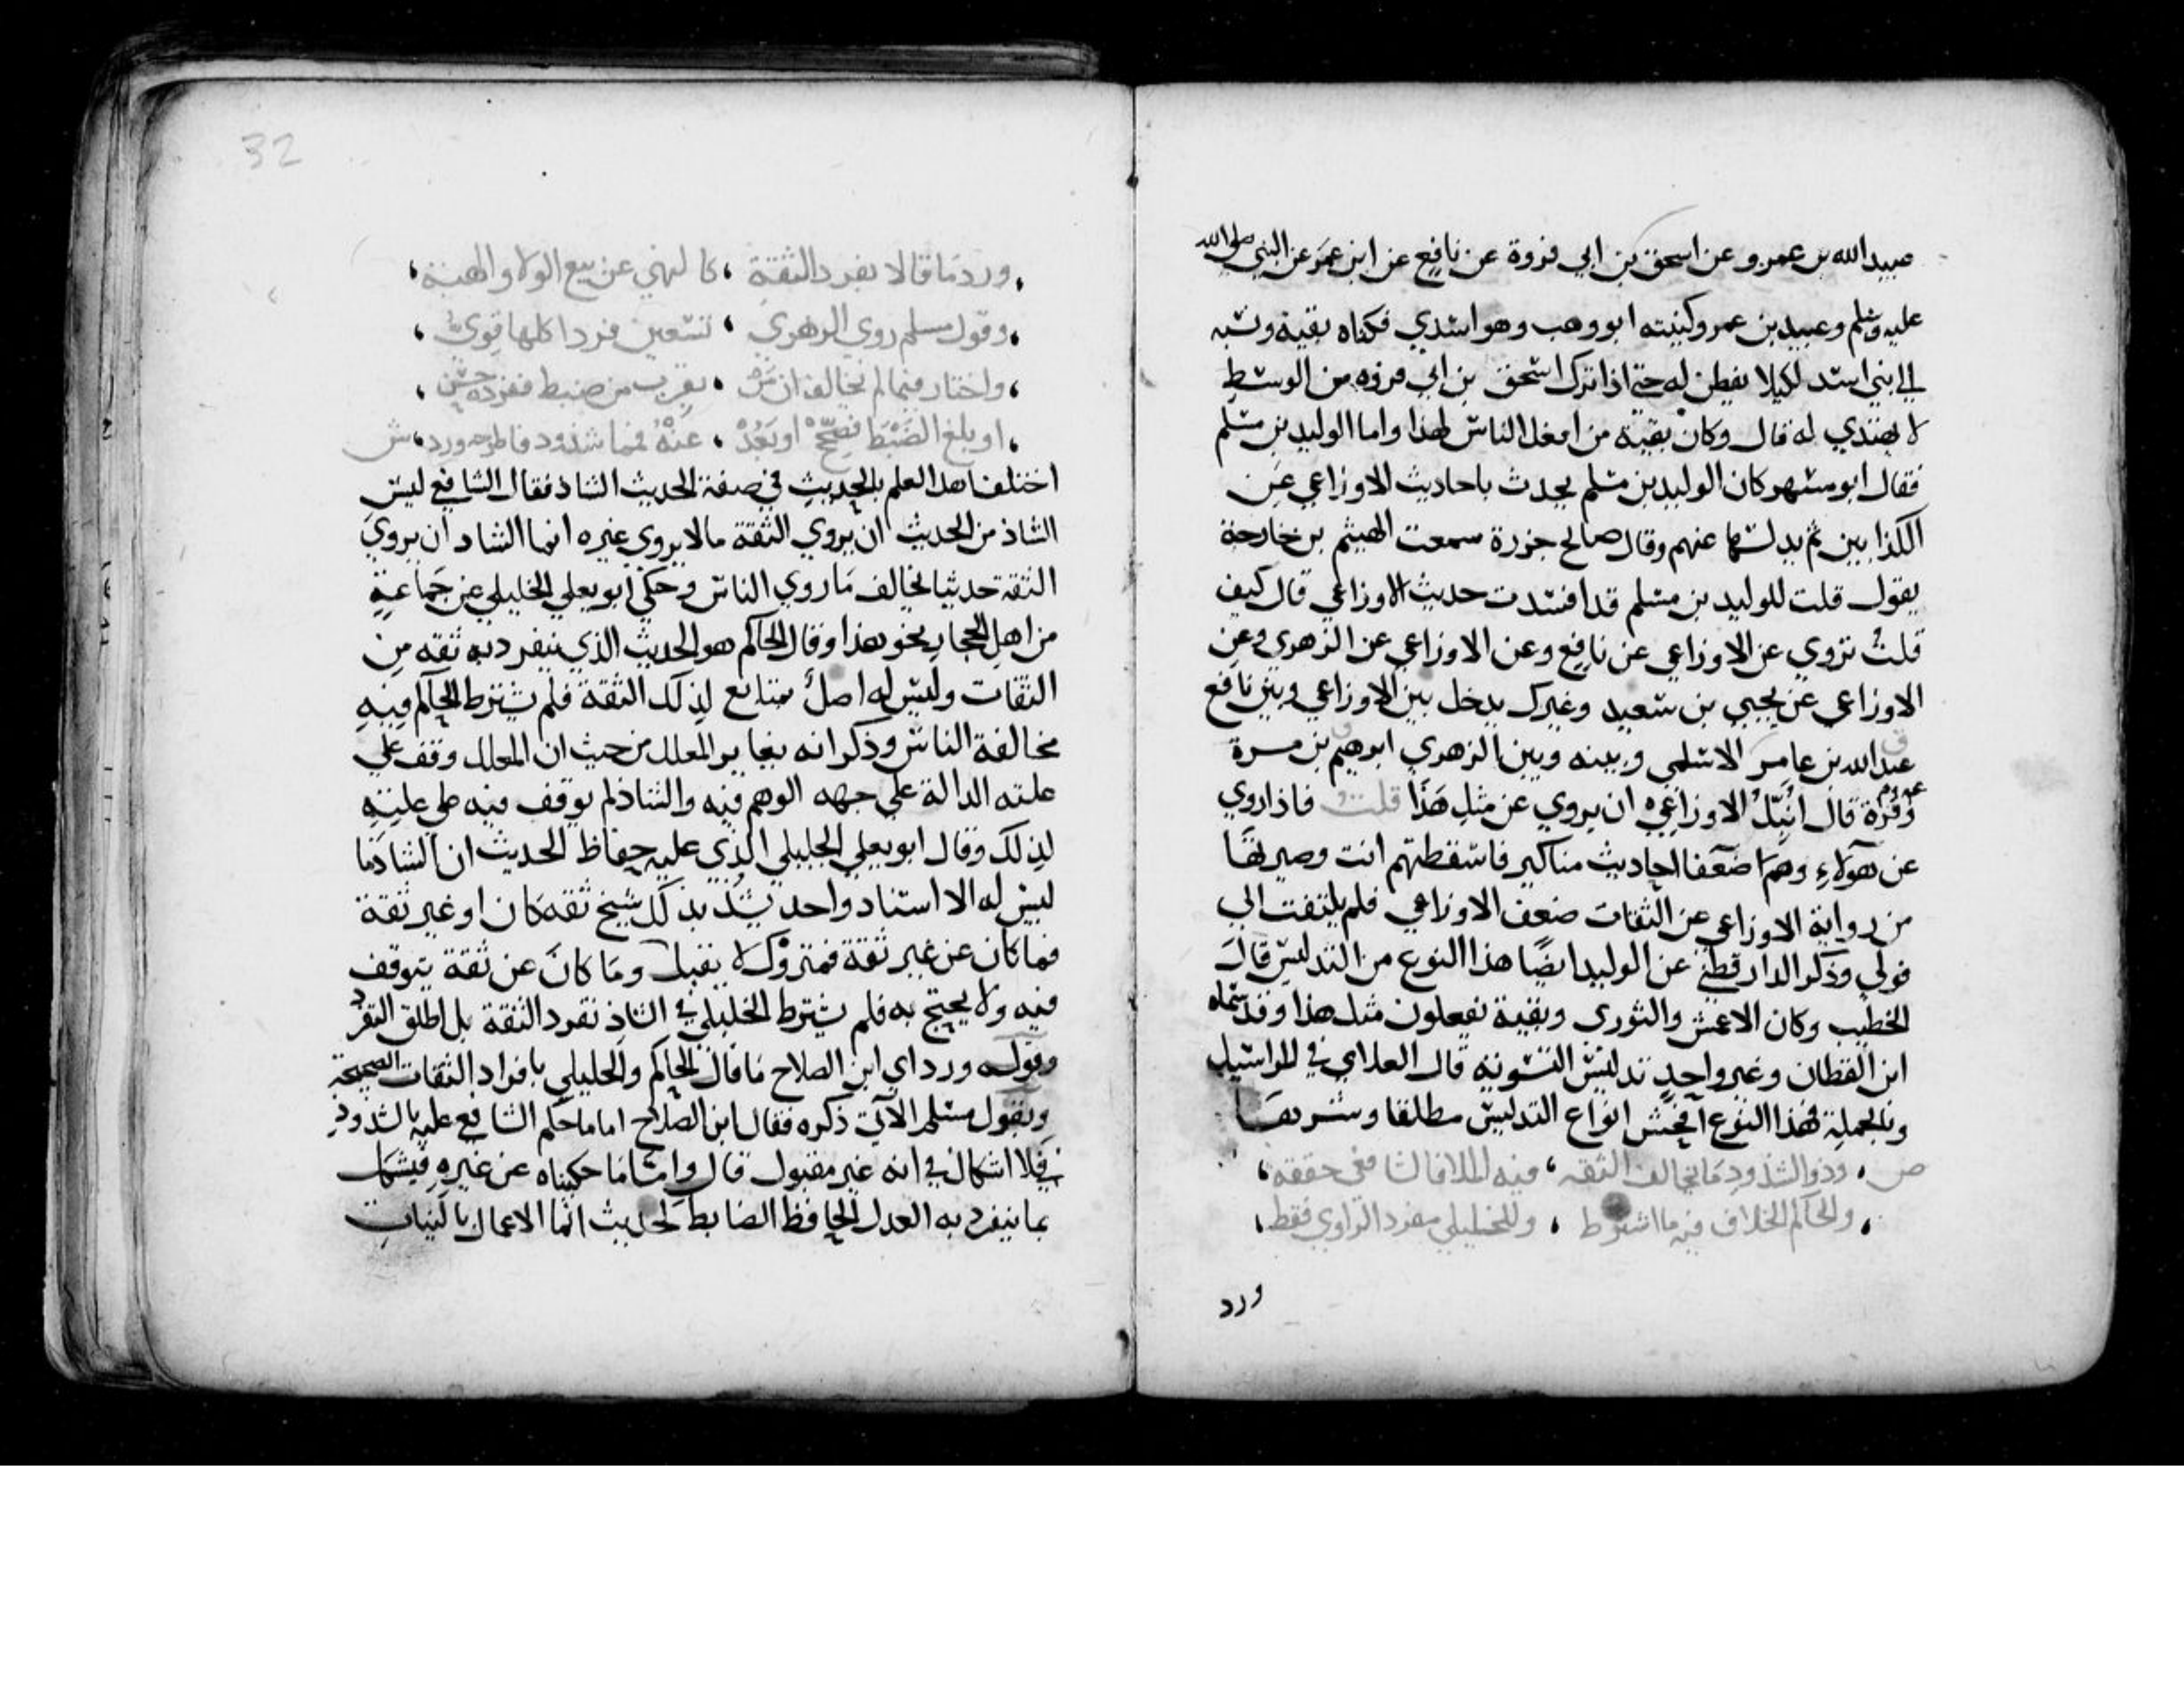 عبيد الله بن عمرو عن اسحق بن ابي فروة عن نافع عن ابن عمر عن النبي صلى الله
عليه وسلم وعبيد بن عمرو كنيته ابو وهب وهو اسدي فكناه بقية ونسبه
الي بني اسد لكيلا يفطن له حتي اذا ترك اسحق بن ابي فروه من الوسط
لا يهتدي له قال وكان بقية من افعل الناس لهذا واما الوليد بن مسلم
فقال ابو مسهر كان الوليد بن مسلم يحدث باحاديث الاوزاعي عن
الكذابين ثم يدلسها عنهم وقال صالح جزرة سمعت الهيثم بن خارجة
يقول قلت للوليد بن مسلم قد افسدت حديث الاوزاعي قال كيف
قلت تروي عن الاوزاعي عن نافع وعن الاوزاعي عن الزهري وعن
الاوزاعي عن يحيي بن سعيد وغيرك يدخل بين الاوزاعي وبين نافع
عبد الله بن عامر الاسلمي وبينه وبين الزهري ابرهيم بن مرة
وقرة قال انبل الاوزاعي ان يروي عن مثل هذا قلت فاذا روي
عن هولاء وهم ضعفا احاديث مناكير فاسقطتهم انت وصيرتها
من رواية الاوزاعي عن الثقات ضعف الاوزاعي فلم يلتفت الي
قولي وذكر الدارقطني عن الوليد ايضا هذا النوع من التدليس قال
الخطيب وكان الاعمش والثوري وبقية يفعلون مثل هذا وقد سماه
ابن القطان وغير واحد تدليس التسوية قال العلاي في المراسيل
وبالجملة فهذا النوع افحش انواع التدليس مطلقا وشرها
ص وذو الشذوذ ما يخالف الثقه فيه الملا فالشافعي حققه
والحاكم الخلاف فيه ما اشترط وللخليلي مفرد الراوي فقط
ورد
32
ورد ما قالا بفرد الثقة كالنهي عن بيع الولا والهبة
وقول مسلم روي الزهري تسعين فردا كلها قوي
واختار فيما لم يخالف ان من يقرب من ضبط ففرده حسن
او بلغ الضبط فصحح او بعد عنه فمما شذ فاطرحه ورد ش
اختلف اهل العلم بالحديث في صفة الحديث الشاذ فقال الشافعي ليس
الشاذ من الحديث ان يروي الثقة مالا يروي غيره انما الشاذ ان يروي
الثقة حديثا يخالف ما روي الناس وحكي ابو يعلي الخليلي عن جماعة
من اهل الحجاز نحو هذا وقال الحاكم هو الحديث الذي ينفرد به ثقه من
الثقات وليس له اصل متابع لذلك الثقة فلم يشترط الحاكم فيه
مخالفة الناس وذكر انه يغاير المعلل من حيث ان المعلل وقف علي
علته الدالة علي جهه الوهم فيه والشاذ لم يوقف فيه علي علته
لذلك وقال ابو يعلي الخليلي الذي عليه حفاظ الحديث ان الشاذ ما
ليس له الا اسناد واحد يشذ بذلك شيخ ثقه كان او غير ثقة
فما كان عن غير ثقة فمتروك لا يقبل وما كان عن ثقة يتوقف
فيه ولا يحتج به فلم يشترط الخليلي في الشاذ تفرد الثقة بل اطلق التفرد
وقوله ورد اي ابن الصلاح ما قال الحاكم والخليلي بافراد الثقات الصحيحة
وبقول مسلم الاتي ذكره فقال ابن الصلاح اما ما حكم الشافعي عليه بالشذوذ
فلا اشكال في انه غير مقبول قال واما ما حكيناه عن غيره فيشكل
بما ينفرد به العدل الحافظ الضابط لحديث انما الاعمال بالنيات